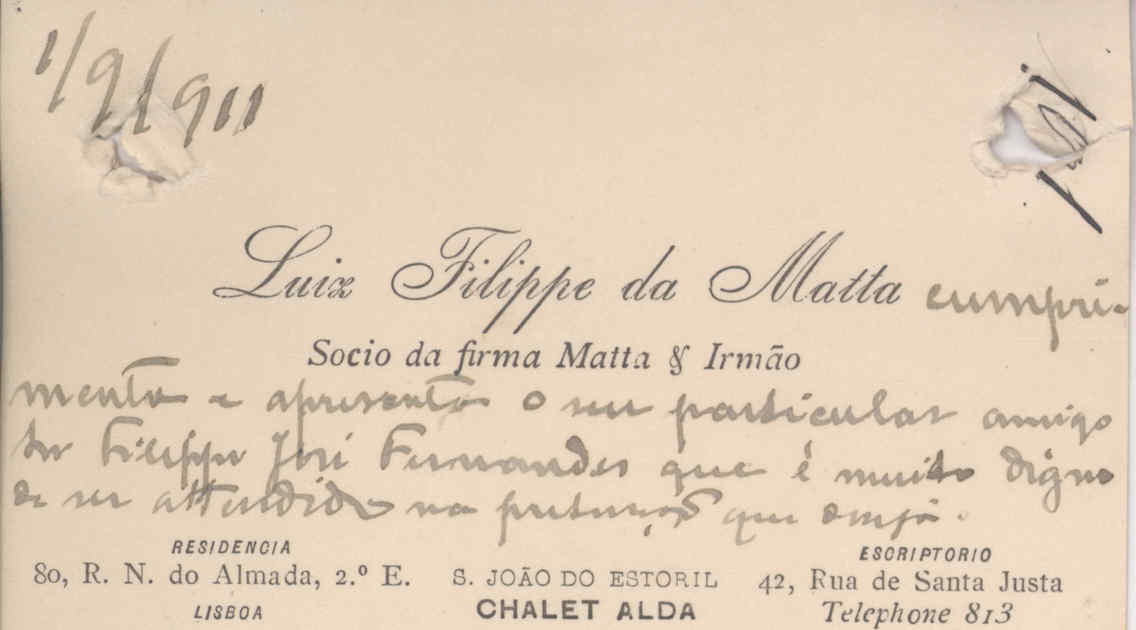 1/9/911
Luiz Filippe da Matta cumpri-
Socio da firma Matta & Irmão
menta e apresenta o seu particular amigo
Snr Filippe José Fernandes que é muito digno
de ser attendido na pretenção que deseja.
RESIDENCIA
80, R. N. do Almada, 2.º E.
LISBOA
S. JOÃO DO ESTORIL
CHALET ALDA
ESCRIPTORIO
42, Rua de Santa Justa
Telephone 813